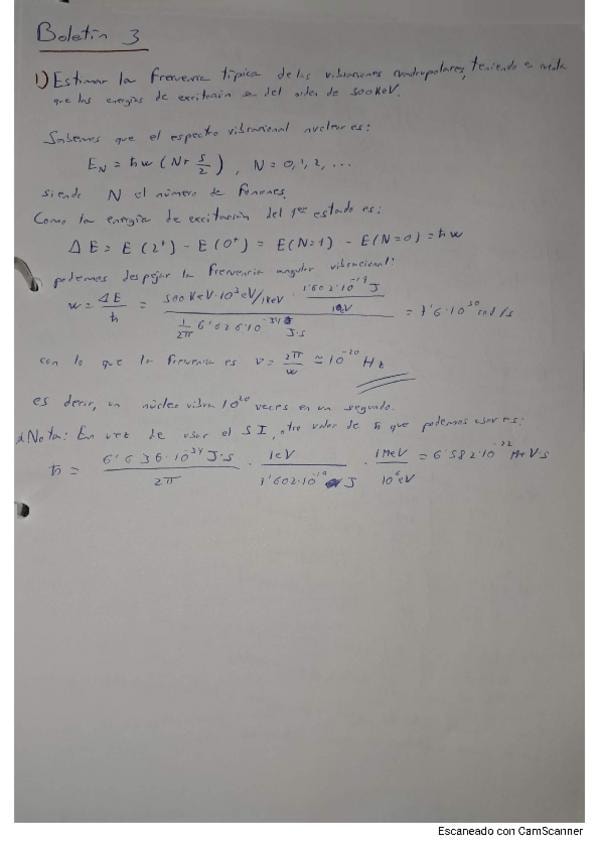 Boletín 3
1) Estimar la frecuencia típica de las vibraciones cuadrupolares, teniendo en cuenta
que las energías de excitación son del orden de 500 KeV.
Sabemos que el espectro vibracional nuclear es:
E_N = ħω (N + 5/2), N = 0, 1, 2, ...
siendo N el número de fonones.
Como la energía de excitación del 1er estado es:
ΔE = E(2⁺) - E(0⁺) = E(N=1) - E(N=0) = ħω
podemos despejar la frecuencia angular vibracional:
ω = ΔE/ħ = (500 KeV · 10³ eV/1KeV · 1'602·10⁻¹⁹ J/1eV) / (1/2π 6'626·10⁻³⁴ J·s) = 7'6·10²⁰ rad/s
con lo que la frecuencia es ν = 2π/ω ≃ 10⁻²⁰ Hz
es decir, un núcleo vibra 10²⁰ veces en un segundo.
Nota: En vez de usar el SI, otro valor de ħ que podemos usar es:
ħ = 6'636·10⁻³⁴ J·s / 2π · 1eV / 1'602·10⁻¹⁹ J · 1MeV / 10⁶ eV = 6'582·10⁻²² MeV·s
Escaneado con CamScanner